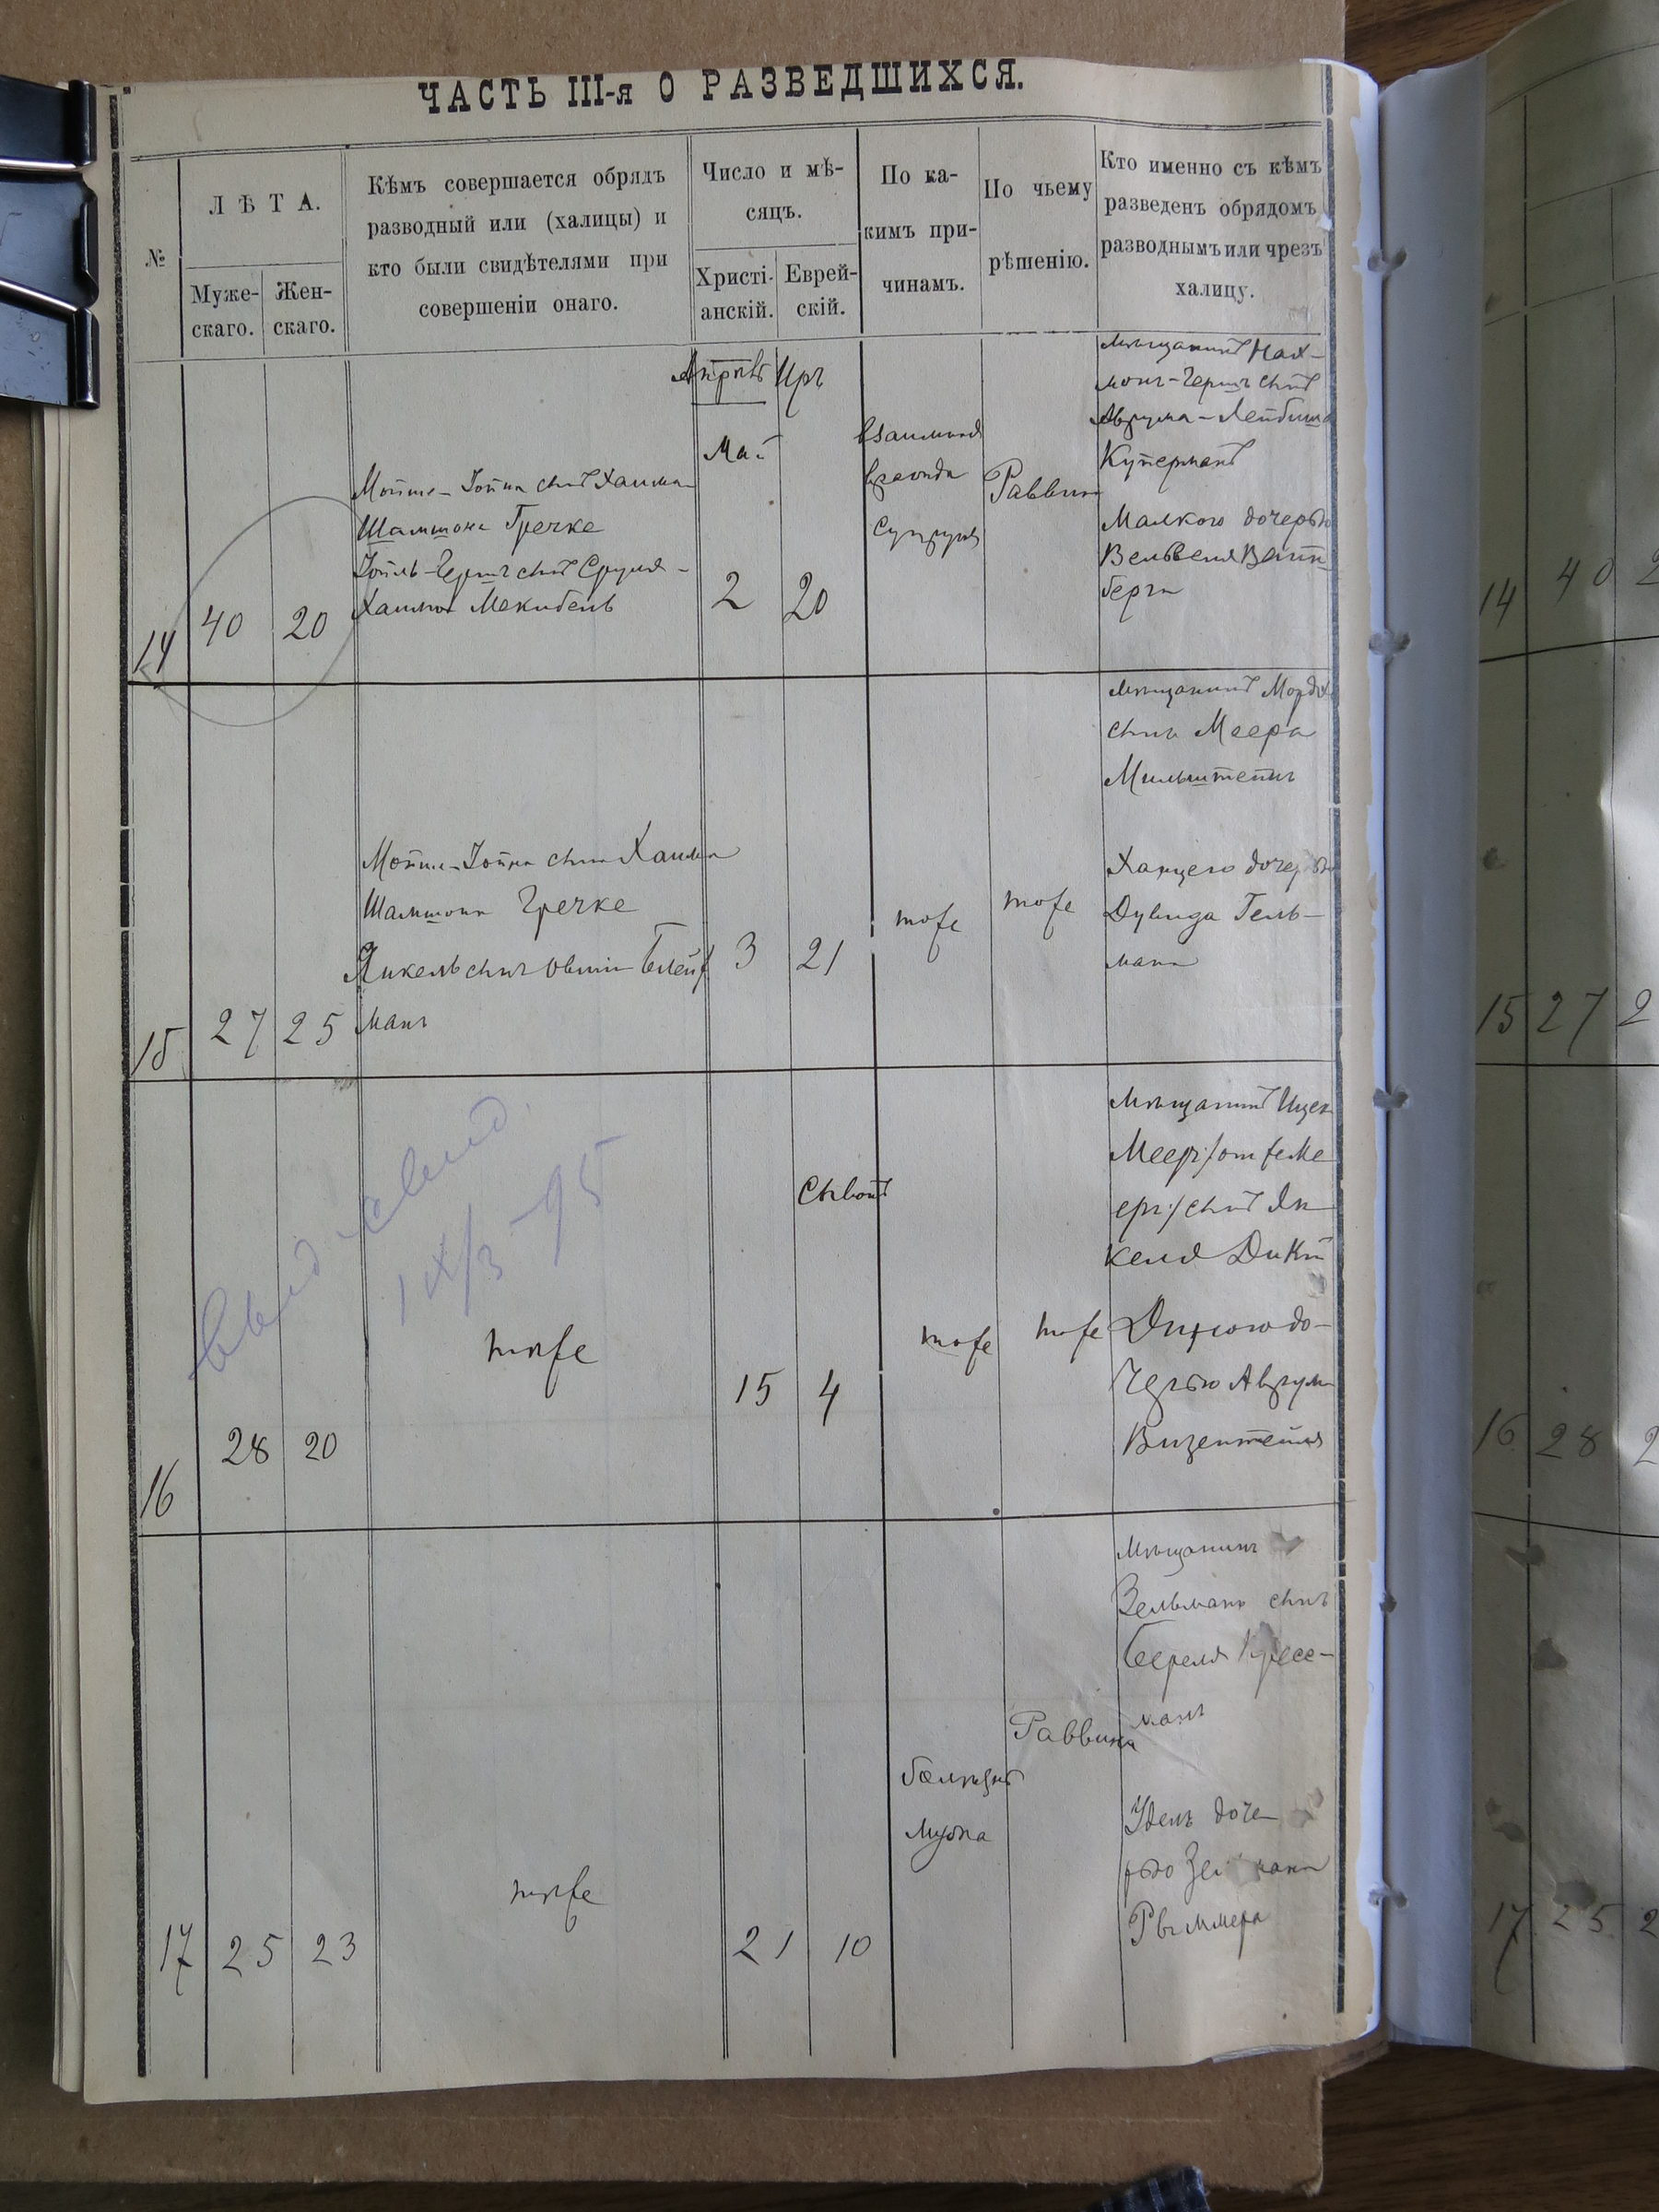 ЧАСТЬ III-я О РАЗВЕДШИХСЯ.
№
ЛѢТА.
Муже-
скаго.
Жен-
скаго.
Кѣмъ совершается обрядъ
разводный или (халицы) и
кто были свидѣтелями при
совершеніи онаго.
Число и мѣ-
сяцъ.
Христі-
анскій.
Еврей-
скій.
По ка-
кимъ при-
чинамъ.
По чьему
рѣшенію.
Кто именно съ кѣмъ
разведенъ обрядомъ
разводнымъ или чрезъ
халицу.
14
40
20
Мойше-Іойна сынъ Хаима
Шамшона Гречке
Іойль-Гершъ сынъ Сруля-
Хаима
Май
2
Иръ
20
взаимная
вражда
супруговъ
Раввин
мѣщанинъ Нах-
монъ-Гершъ сынъ
Аврума-Лейбиша
Куперманъ
Малкою дочерью
Вельвеля Вайн-
берга
15
27
25
Мойше-Іойна сынъ Хаима
Шамшона Гречке
Янкель сынъ
манъ
3
21
тоже
тоже
мѣщанинъ Мордх
сынъ Меера
Мильштейнъ
Ханцею дочерью
Дувида Гель-
мана
выд. свид.
IX/3-95
16
28
20
тоже
15
Сывонъ
4
тоже
тоже
мѣщанинъ Ицек
Меер /он же Ме
еръ/ сынъ Ян
келя Дикій
до-
черью Аврум
17
25
23
тоже
21
10
болѣзнь
мужа
Раввина
мѣщанинъ
Зельманъ сынъ
Береля
манъ
Удель доче
рью